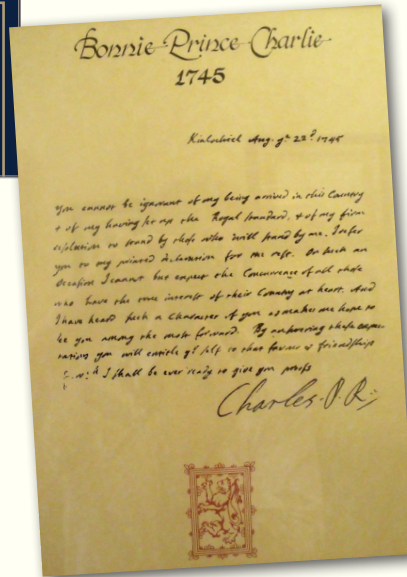 Bonnie Prince Charlie
1745
Kinlochiel Aug. ye 22d 1745
You cannot be ignorant of my being arrived in this Country
& of my having set up the Royal Standard, & of my firm
resolution to stand by those who will stand by me, I refer
you to my printed declaration for the rest. On such an
occasion I cannot but expect the Concurrence of all those
who have the true interest of their Country at heart. And
I have heard such a Character of you as makes me hope to
see you among the most forward. By answering these expec-
tations you will entitle yr self to that favour & friendship
of wch I shall be ever ready to give you proofs
Charles. P. R.